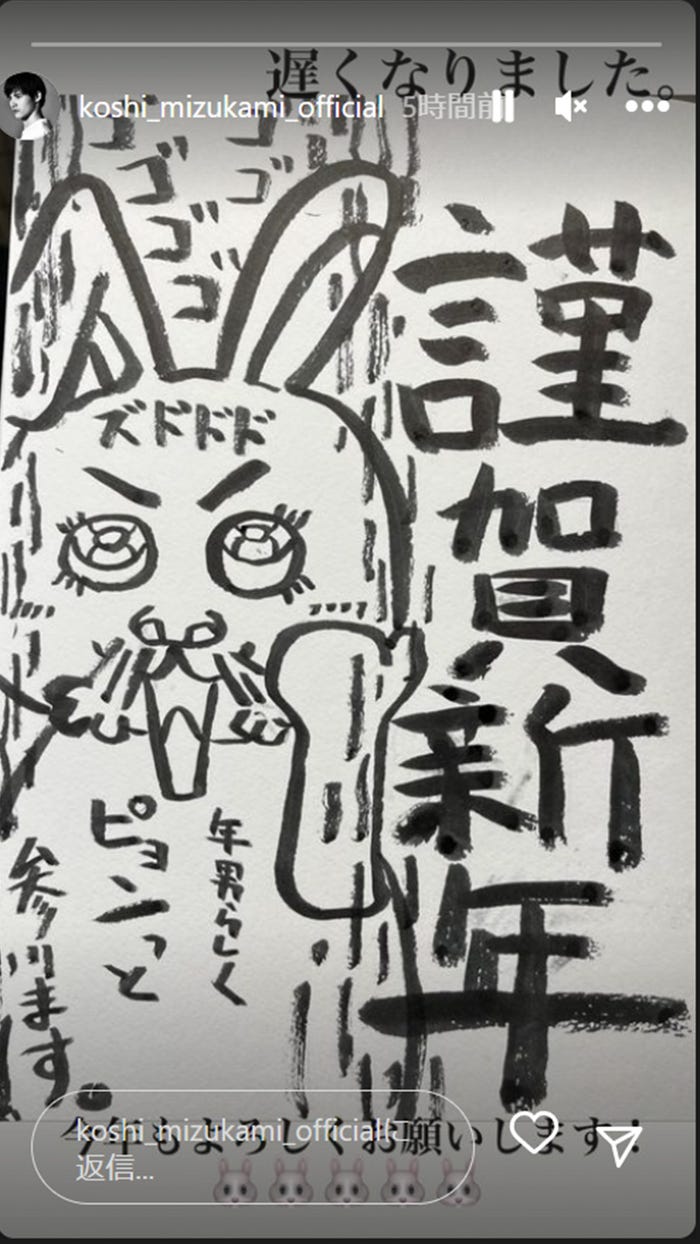 遅くなりました。
koshi_mizukami_official 5時間前
ゴゴゴゴ
ゴゴ
謹
賀
新
年
ズドドド
年男らしく
ピョンっと
参ります。
今年もよろしくお願いします！
koshi_mizukami_officialに
返信...